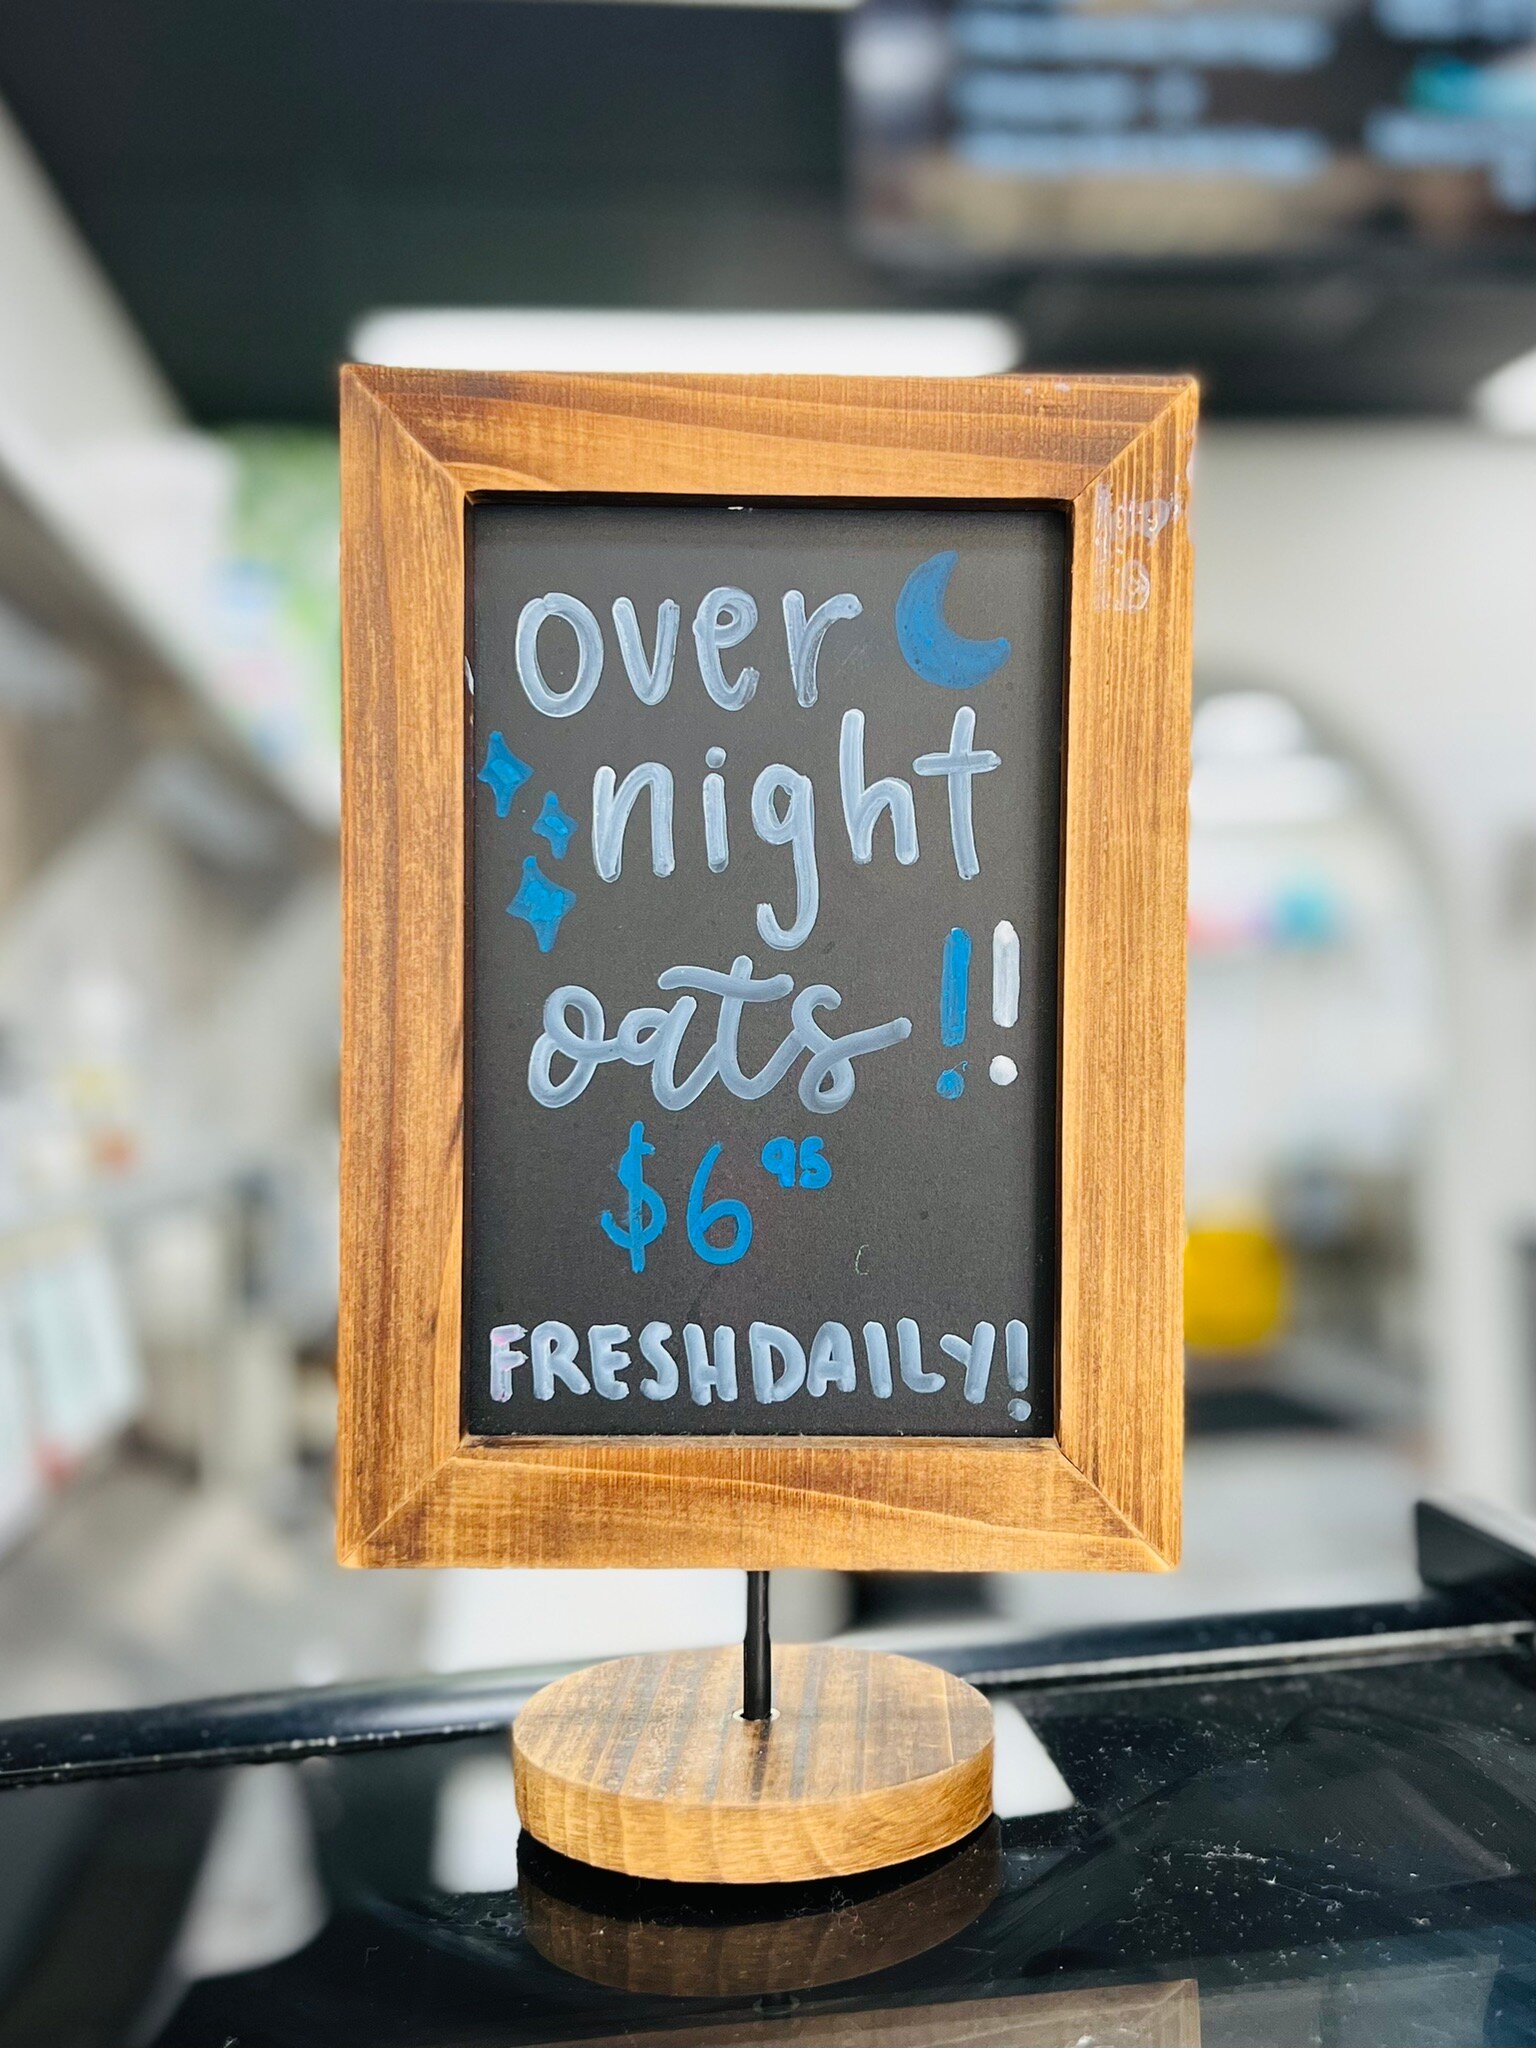 over
night
oats !!
$6 95
FRESH DAILY!